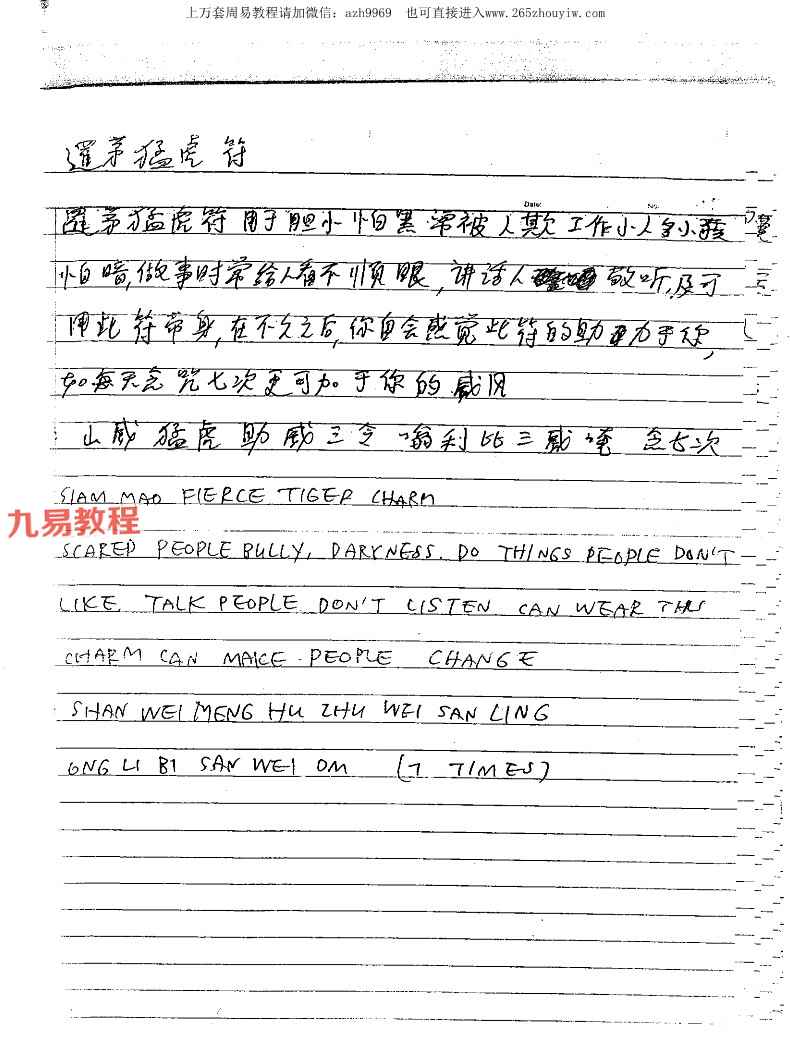 上万套周易教程请加微信：azh9969 也可直接进入www.265zhouyiw.com
暹茅猛虎符
Date: No.
暹茅猛虎符用于胆小怕黑常被人欺工作小人多小孩
怕暗,做事时常给人看不顺眼,讲话人 敢听,及可
用此符带身,在不久之后,你自会感觉此符的助力于你,
如每天念咒七次更可加于你的威风
山威猛虎助威三令 嗡利比三威唵 念七次
SIAM MAO FIERCE TIGER CHARM
九易教程
SCARED PEOPLE BULLY, DARKNESS. DO THINGS PEOPLE DON'T
LIKE TALK PEOPLE DON'T LISTEN CAN WEAR THIS
CHARM CAN MAKE PEOPLE CHANGE
SHAN WEI MENG HU ZHU WEI SAN LING
ONG LI BI SAN WEI OM (7 TIMES)